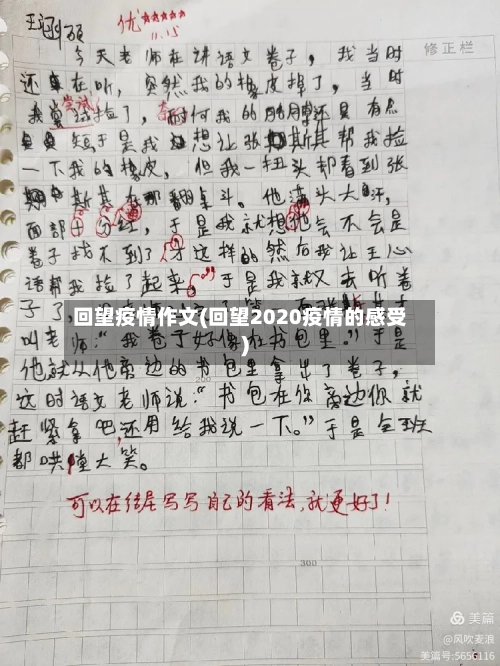 王
硕
优★★★★★
11.15
修正栏
今天老师在讲语文卷子，我当时
还在听，突然我的橡皮掉了，当时
我尝试捡了，奈何我的胳膊还是有点
短于是我想让张斯其帮我捡
一下我的橡皮，但我一扭头却看到张
斯其在那翻桌斗。他满头大汗，
面部十分红，于是我就想他会不会是
卷子找不到了才这样的然后我让王心
语帮我捡了起来。于是我又去听卷
子了，
回望疫情作文(回望2020疫情的感受
)
叫老师：“我卷子好像在书包里。”于是
他就从他旁边的书包里拿出了卷子，
200
这时语文老师说：“书包在你旁边你就
赶紧拿吧，还用给我说一下。”于是全班
都哄堂大笑。
可以在结尾写写自己的看法，就更好了！
300
美篇
@风吹麦浪
美篇号:5656116